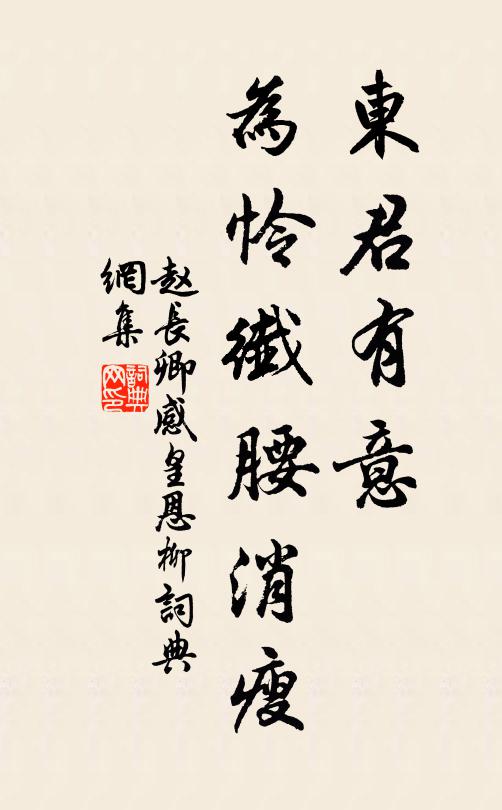 東君有意
為怜纖腰消瘦
赵長卿感皇恩柳詞典
網集
詞典网印